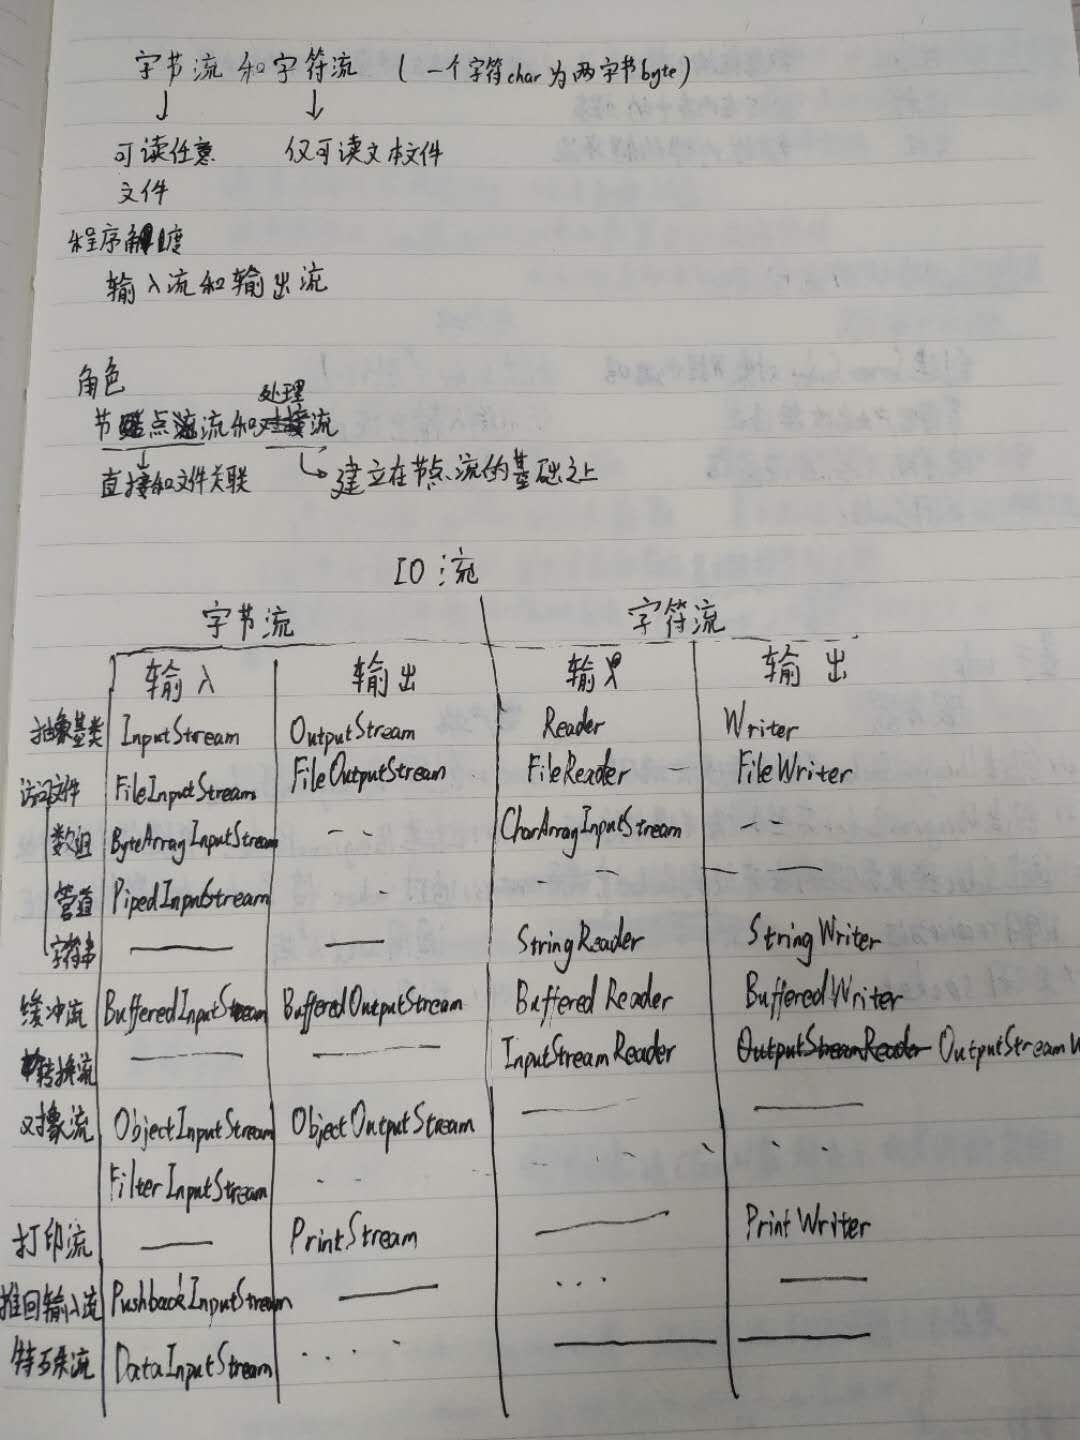 字节流 和字符流 （一个字符char为两字节byte）
↓ ↓
可读任意 仅可读文本文件
文件
程序角度
输入流和输出流
角色
处理
节点流和对接流
直接和文件关联 建立在节点流的基础之上
IO流
字节流 字符流
输入 输出 输入 输出
抽象基类 InputStream OutputStream Reader Writer
访问文件 FileInputStream FileOutputStream FileReader — FileWriter
数组 ByteArrayInputStream -- CharArrayInputStream --
管道 PipedInputstream -- -- — —
字符串 — — StringReader StringWriter
缓冲流 BufferedInputStream BufferedOutputStream BufferedReader BufferedWriter
转换流 — — InputStreamReader OutputStreamReader OutputStreamW
对象流 ObjectInputStream ObjectOutputStream — —
FilterInputStream -- ... ...
打印流 — PrintStream — PrintWriter
推回输入流 PushbackInputStream — ... —
特殊流 DataInputStream .... — —